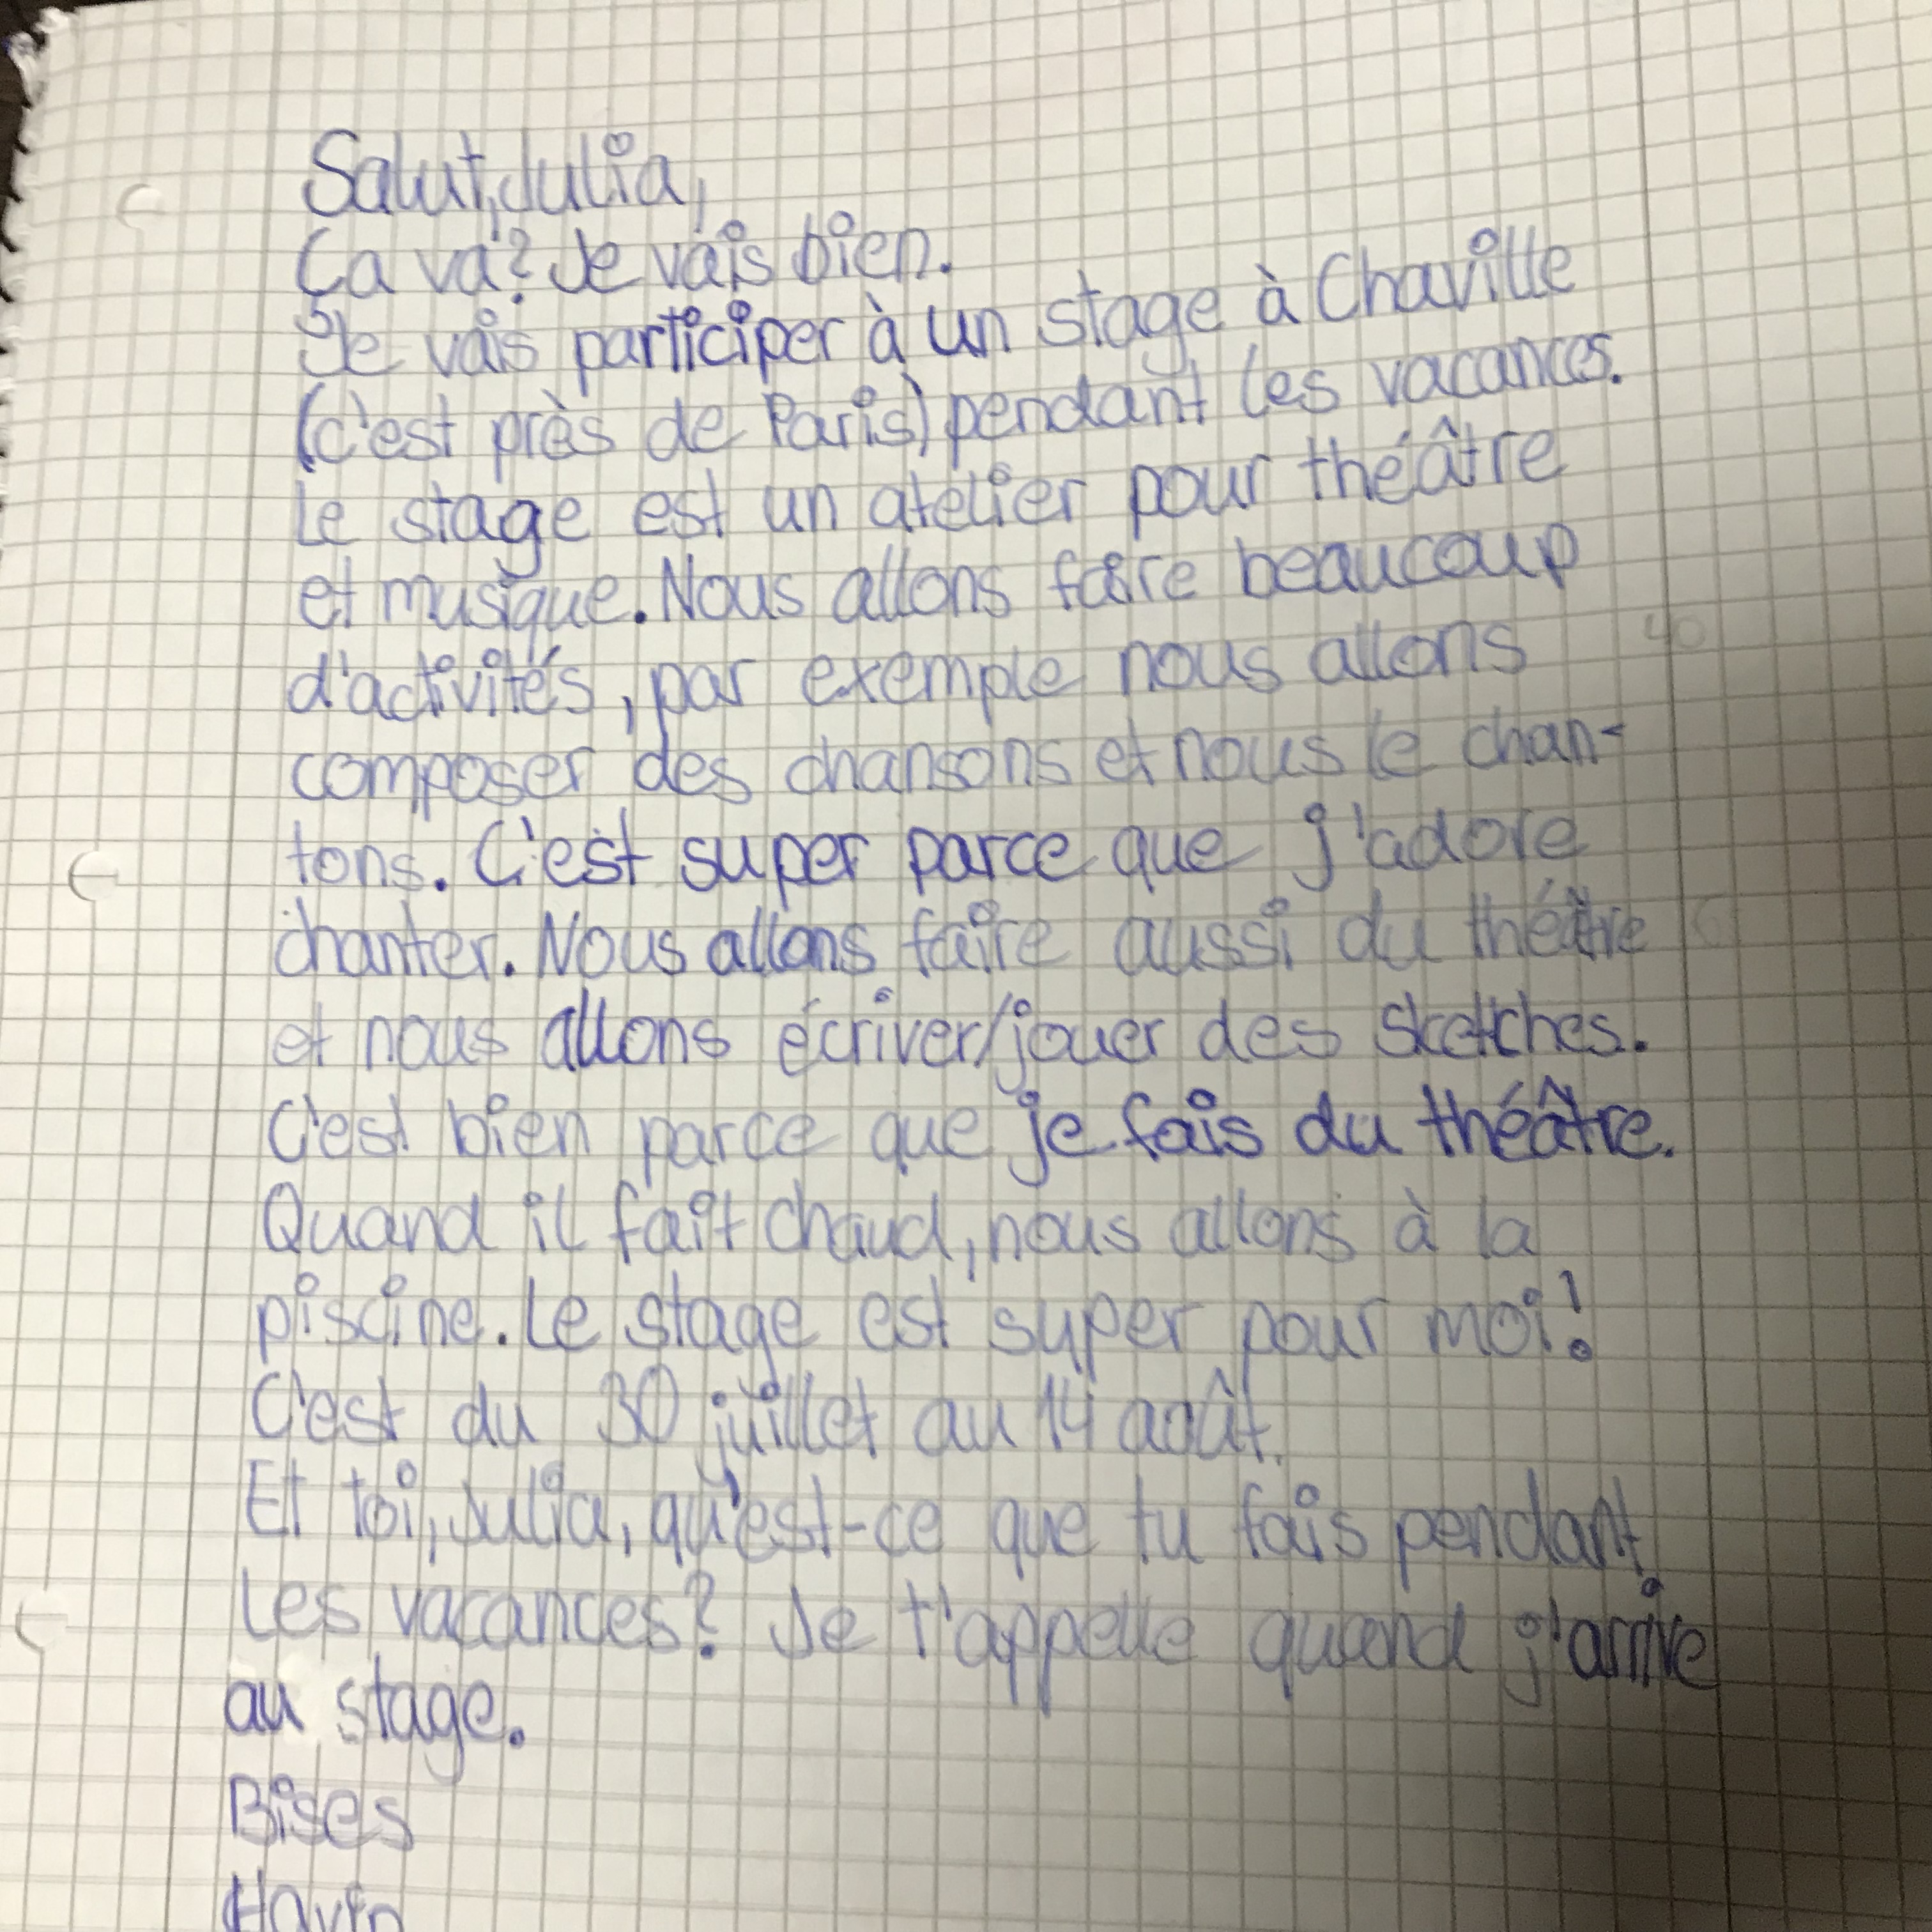 Salut, Julia,
Ça va? Je vais bien.
Je vais participer à un stage à Chaville
(c'est près de Paris) pendant les vacances.
Le stage est un atelier pour théâtre
et musique. Nous allons faire beaucoup
d'activités, par exemple nous allons
composer des chansons et nous le chan-
tons. C'est super parce que j'adore
chanter. Nous allons faire aussi du théâtre
et nous allons écriver/jouer des sketches.
C'est bien parce que je fais du théâtre.
Quand il fait chaud, nous allons à la
piscine. Le stage est super pour moi!
C'est du 30 juillet au 14 août.
Et toi, Julia, qu'est-ce que tu fais pendant
les vacances? Je t'appelle quand j'arrive
au stage.
Bises